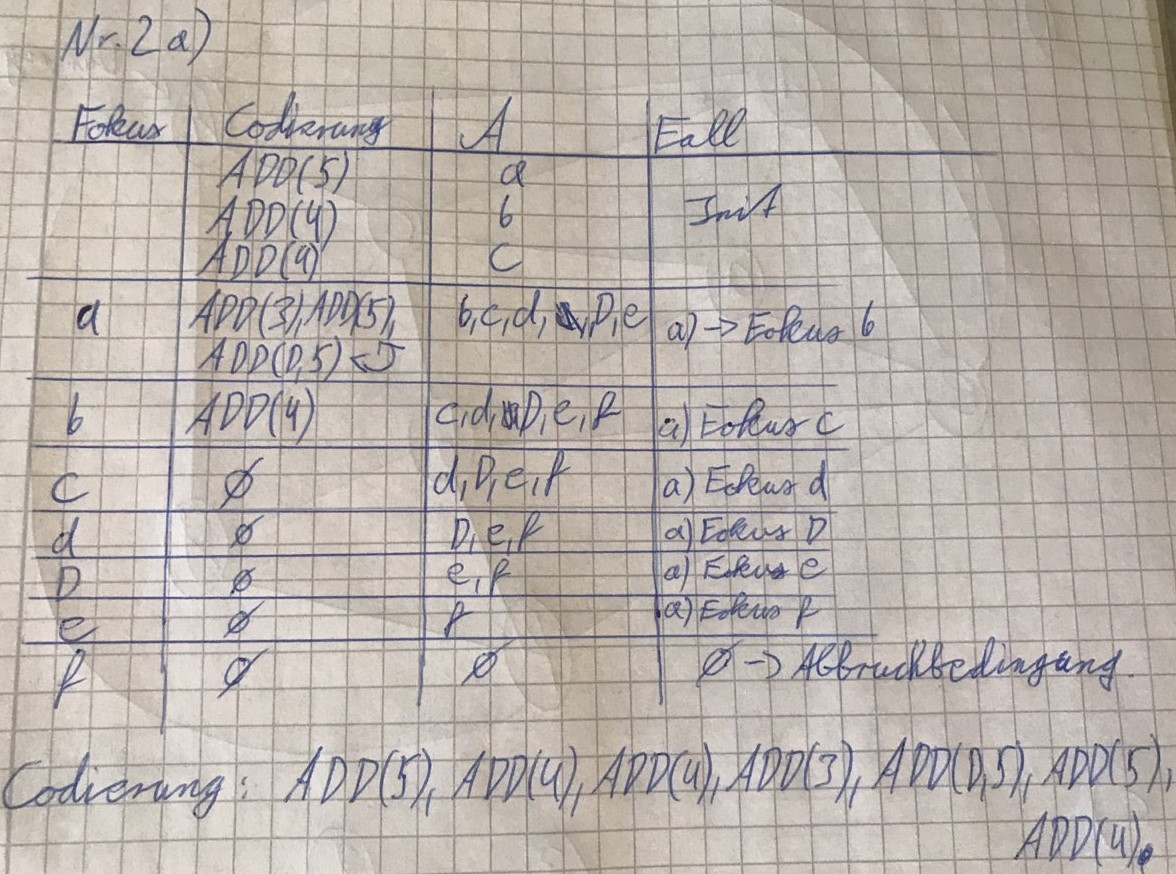 Nr. 2 a)
Fokus Codierung A Fall
ADD(5) a
ADD(4) b Init
ADD(4) c
a ADD(3), ADD(5), b, c, d, D, e a) -> Fokus b
ADD(D,5) <-
b ADD(4) c, d, D, e, f a) Fokus c
c ∅ d, D, e, f a) Fokus d
d ∅ D, e, f a) Fokus D
D ∅ e, f a) Fokus e
e ∅ f a) Fokus f
f ∅ ∅ ∅ -> Abbruchbedingung.
Codierung: ADD(5), ADD(4), ADD(4), ADD(3), ADD(D,5), ADD(5),
ADD(4).